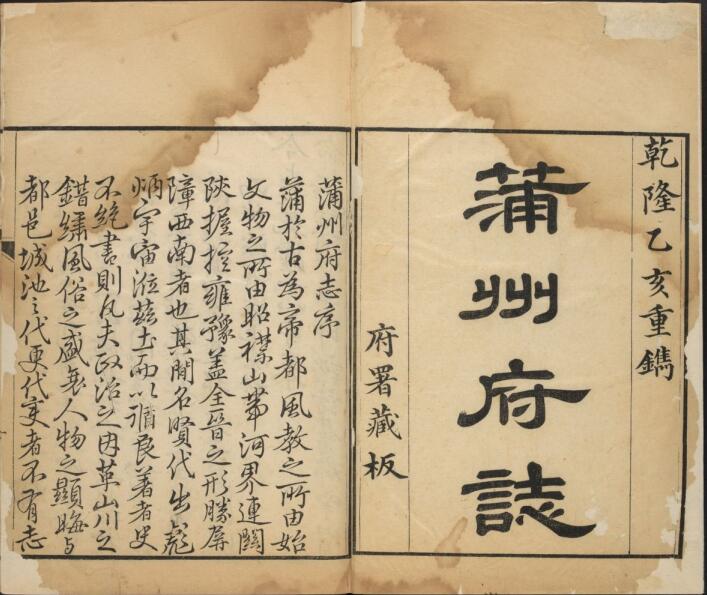 乾隆乙亥重鐫
蒲州府誌
府署藏板
蒲州府志序
蒲於古為帝都風教之所由始
文物之所由昭襟山帶河界連關
陝握控雍豫蓋全晉之形勝屏
障西南者也其間名賢代出彪
炳宇宙涖茲土而以循良著者史
不絕書則凡夫政治之因革山川之
錯繡風俗之盛衰人物之顯晦與
都邑城池之代更代變者不有志